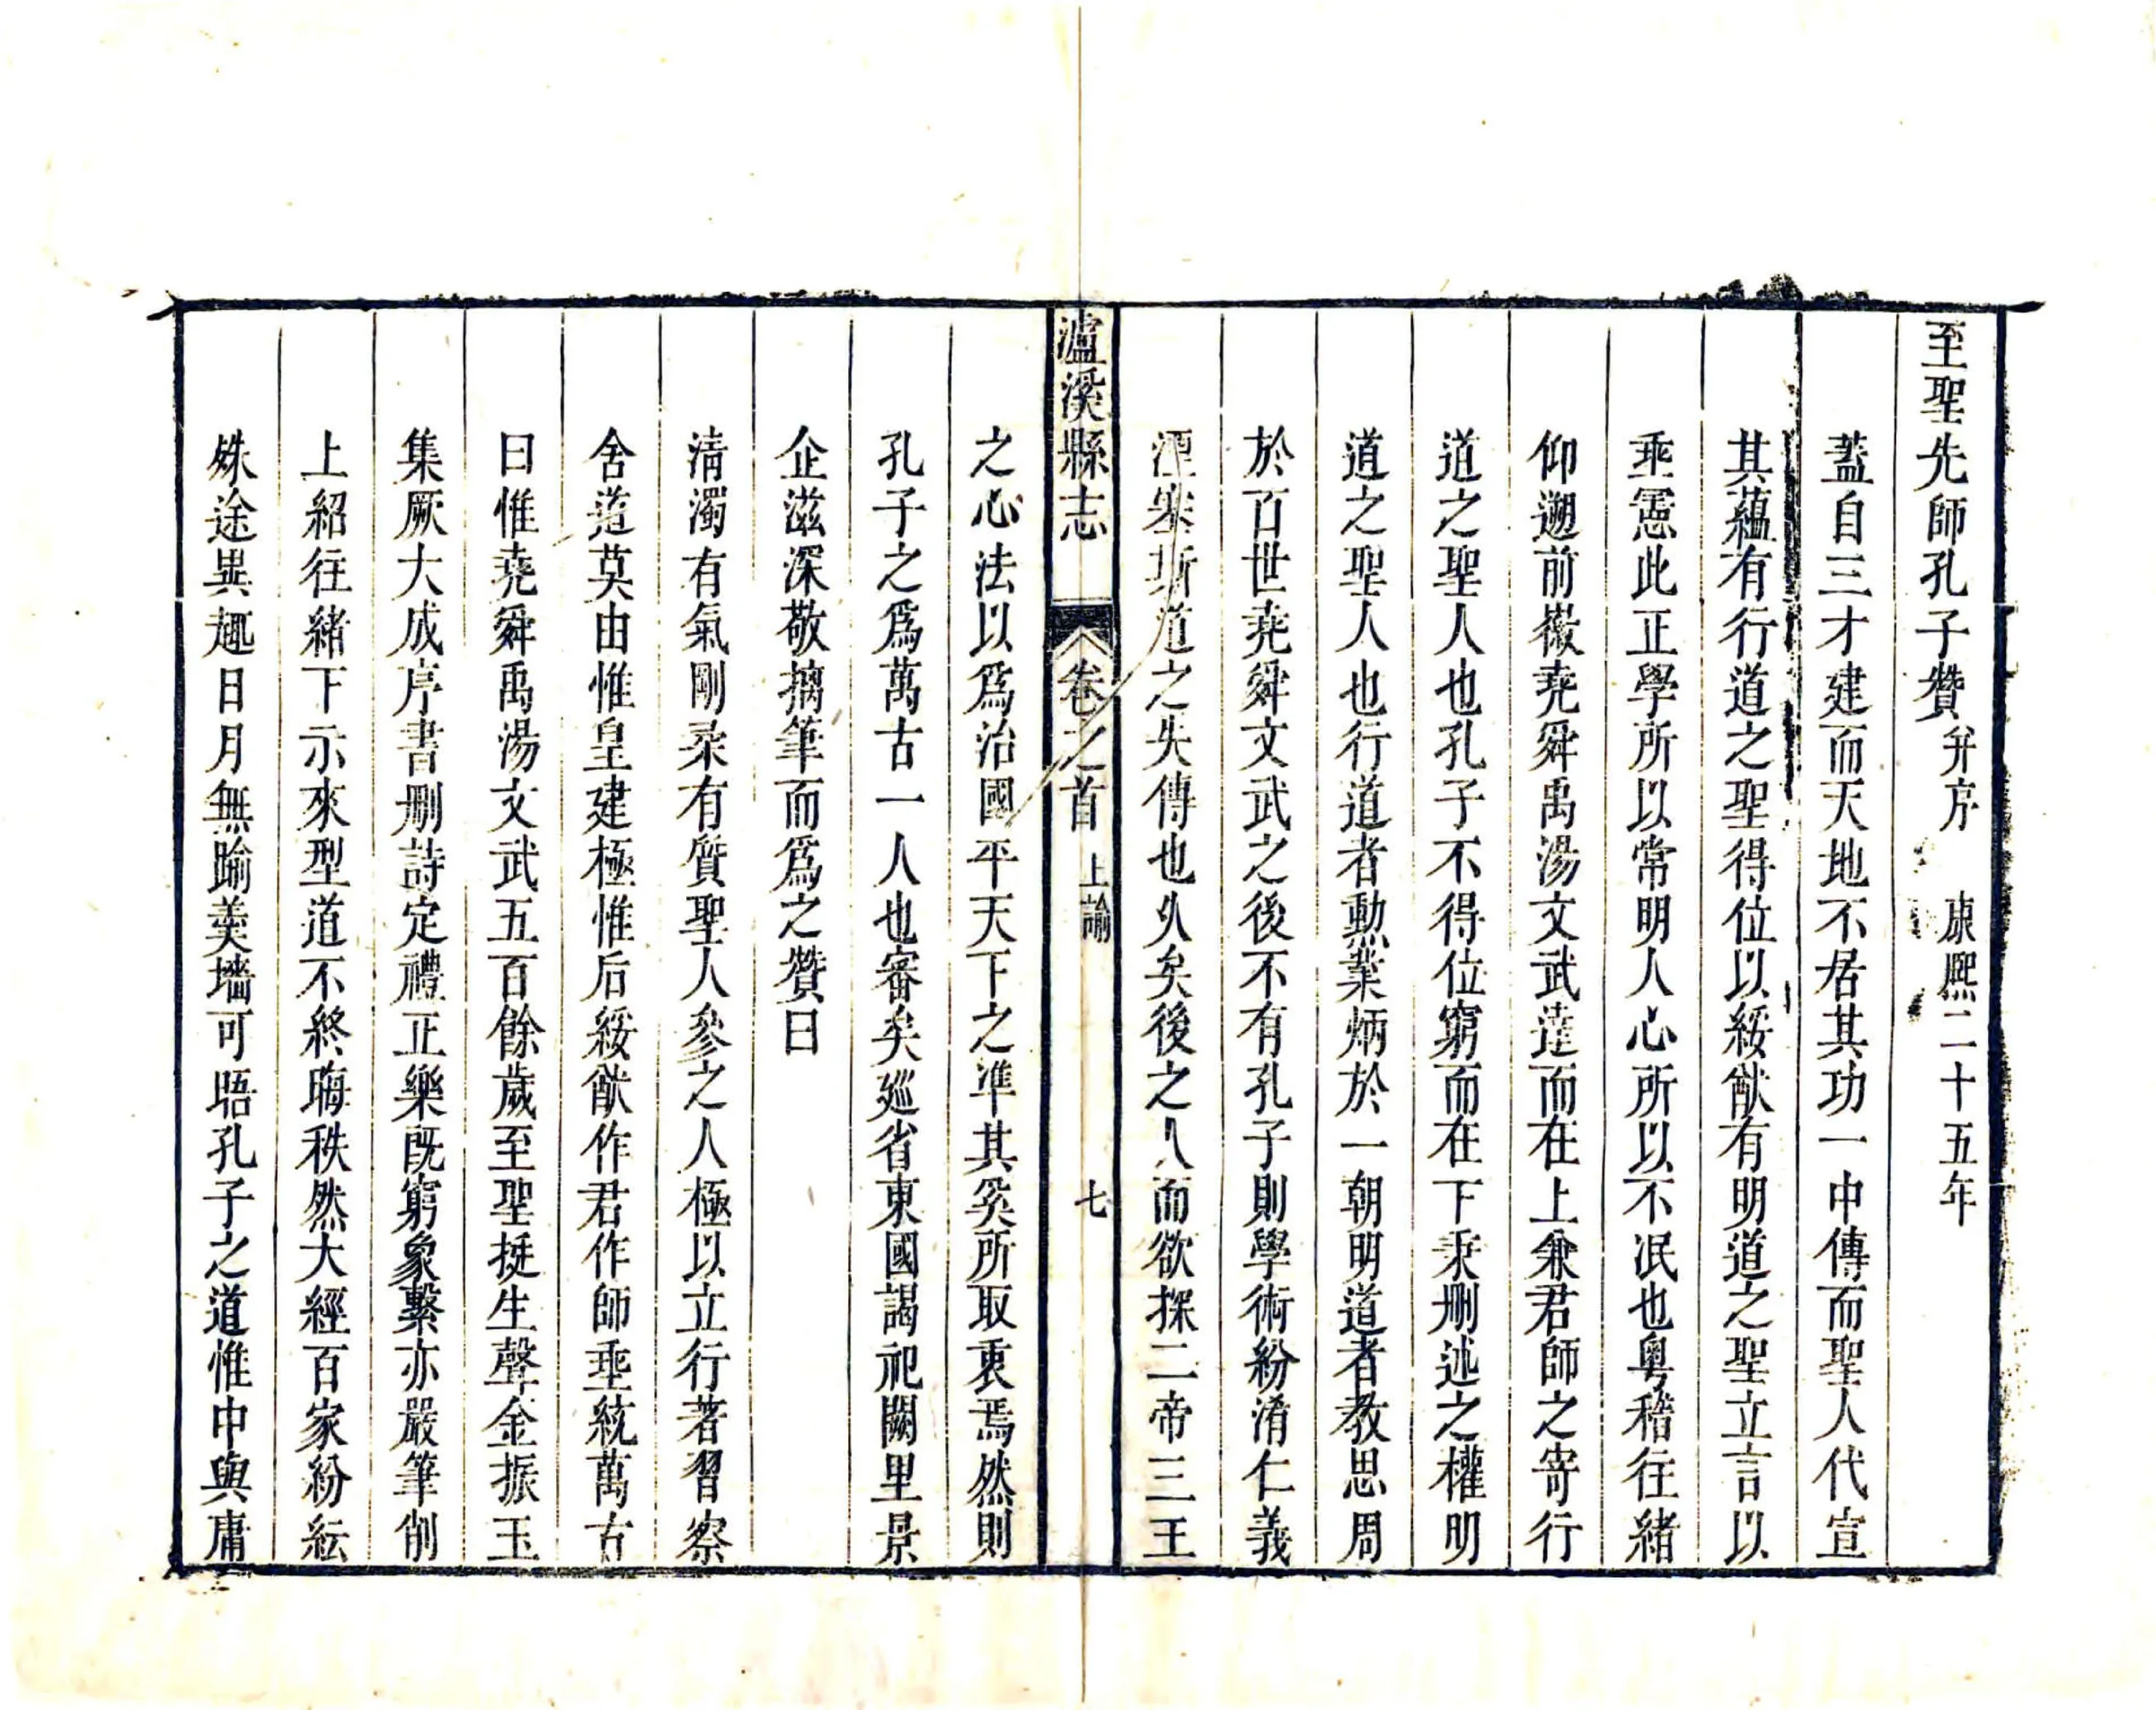 至聖先師孔子贊并序　康熙二十五年
蓋自三才建而天地不居其功一中傳而聖人代宣
其蘊有行道之聖得位以綏猷有明道之聖立言以
垂憲此正學所以常明人心所以不泯也粵稽往緒
仰遡前徽堯舜禹湯文武達而在上兼君師之寄行
道之聖人也孔子不得位窮而在下秉刪述之權明
道之聖人也行道者勳業炳於一朝明道者教思周
於百世堯舜文武之後不有孔子則學術紛淆仁義
湮塞斯道之失傳也久矣後之人而欲探二帝三王
瀘溪縣志　卷之首　上諭　七
之心法以爲治國平天下之凖其奚所取衷焉然則
孔子之爲萬古一人也審矣廵省東國謁祀闕里景
企滋深敬摛筆而爲之贊曰
清濁有氣剛柔有質聖人參之人極以立行著習察
舍道莫由惟皇建極惟后綏猷作君作師垂統萬古
曰惟堯舜禹湯文武五百餘歲至聖挺生聲金振玉
集厥大成序書刪詩定禮正樂既窮象繫亦嚴筆削
上紹往緒下示來型道不終晦秩然大經百家紛紜
殊途異趣日月無踰羹墻可晤孔子之道惟中與庸